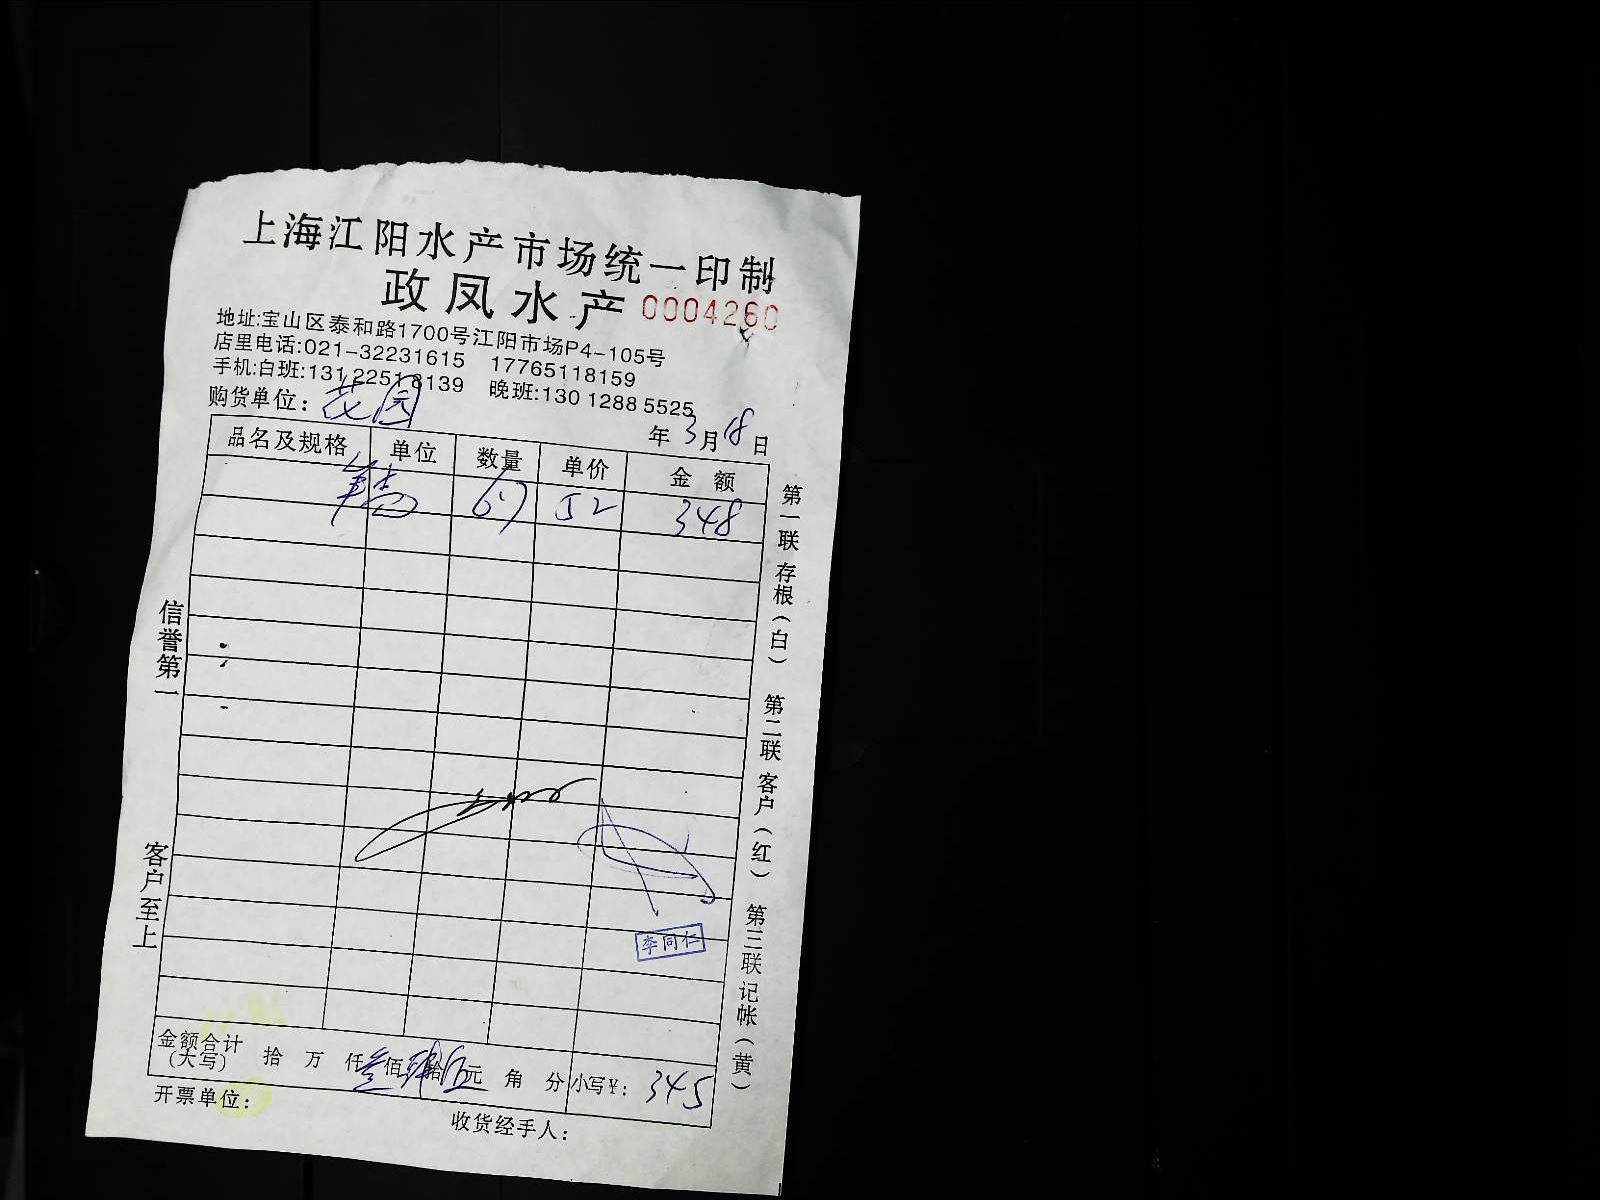 上海江阳水产市场统一印制
政凤水产 0004260
地址:宝山区泰和路1700号江阳市场P4-105号
店里电话:021-32231615 17765118159
手机:白班:131 2251 8139 晚班:130 1288 5525
购货单位: 花园
年 3月18日
品名及规格 单位 数量 单价 金额
67 52 348
第一联 存根(白) 第二联 客户(红) 第三联 记帐(黄)
信誉第一 客户至上
李同仁
金额合计(大写) 拾 万 仟叁佰肆拾伍元 角 分 小写¥: 345
开票单位:
收货经手人: